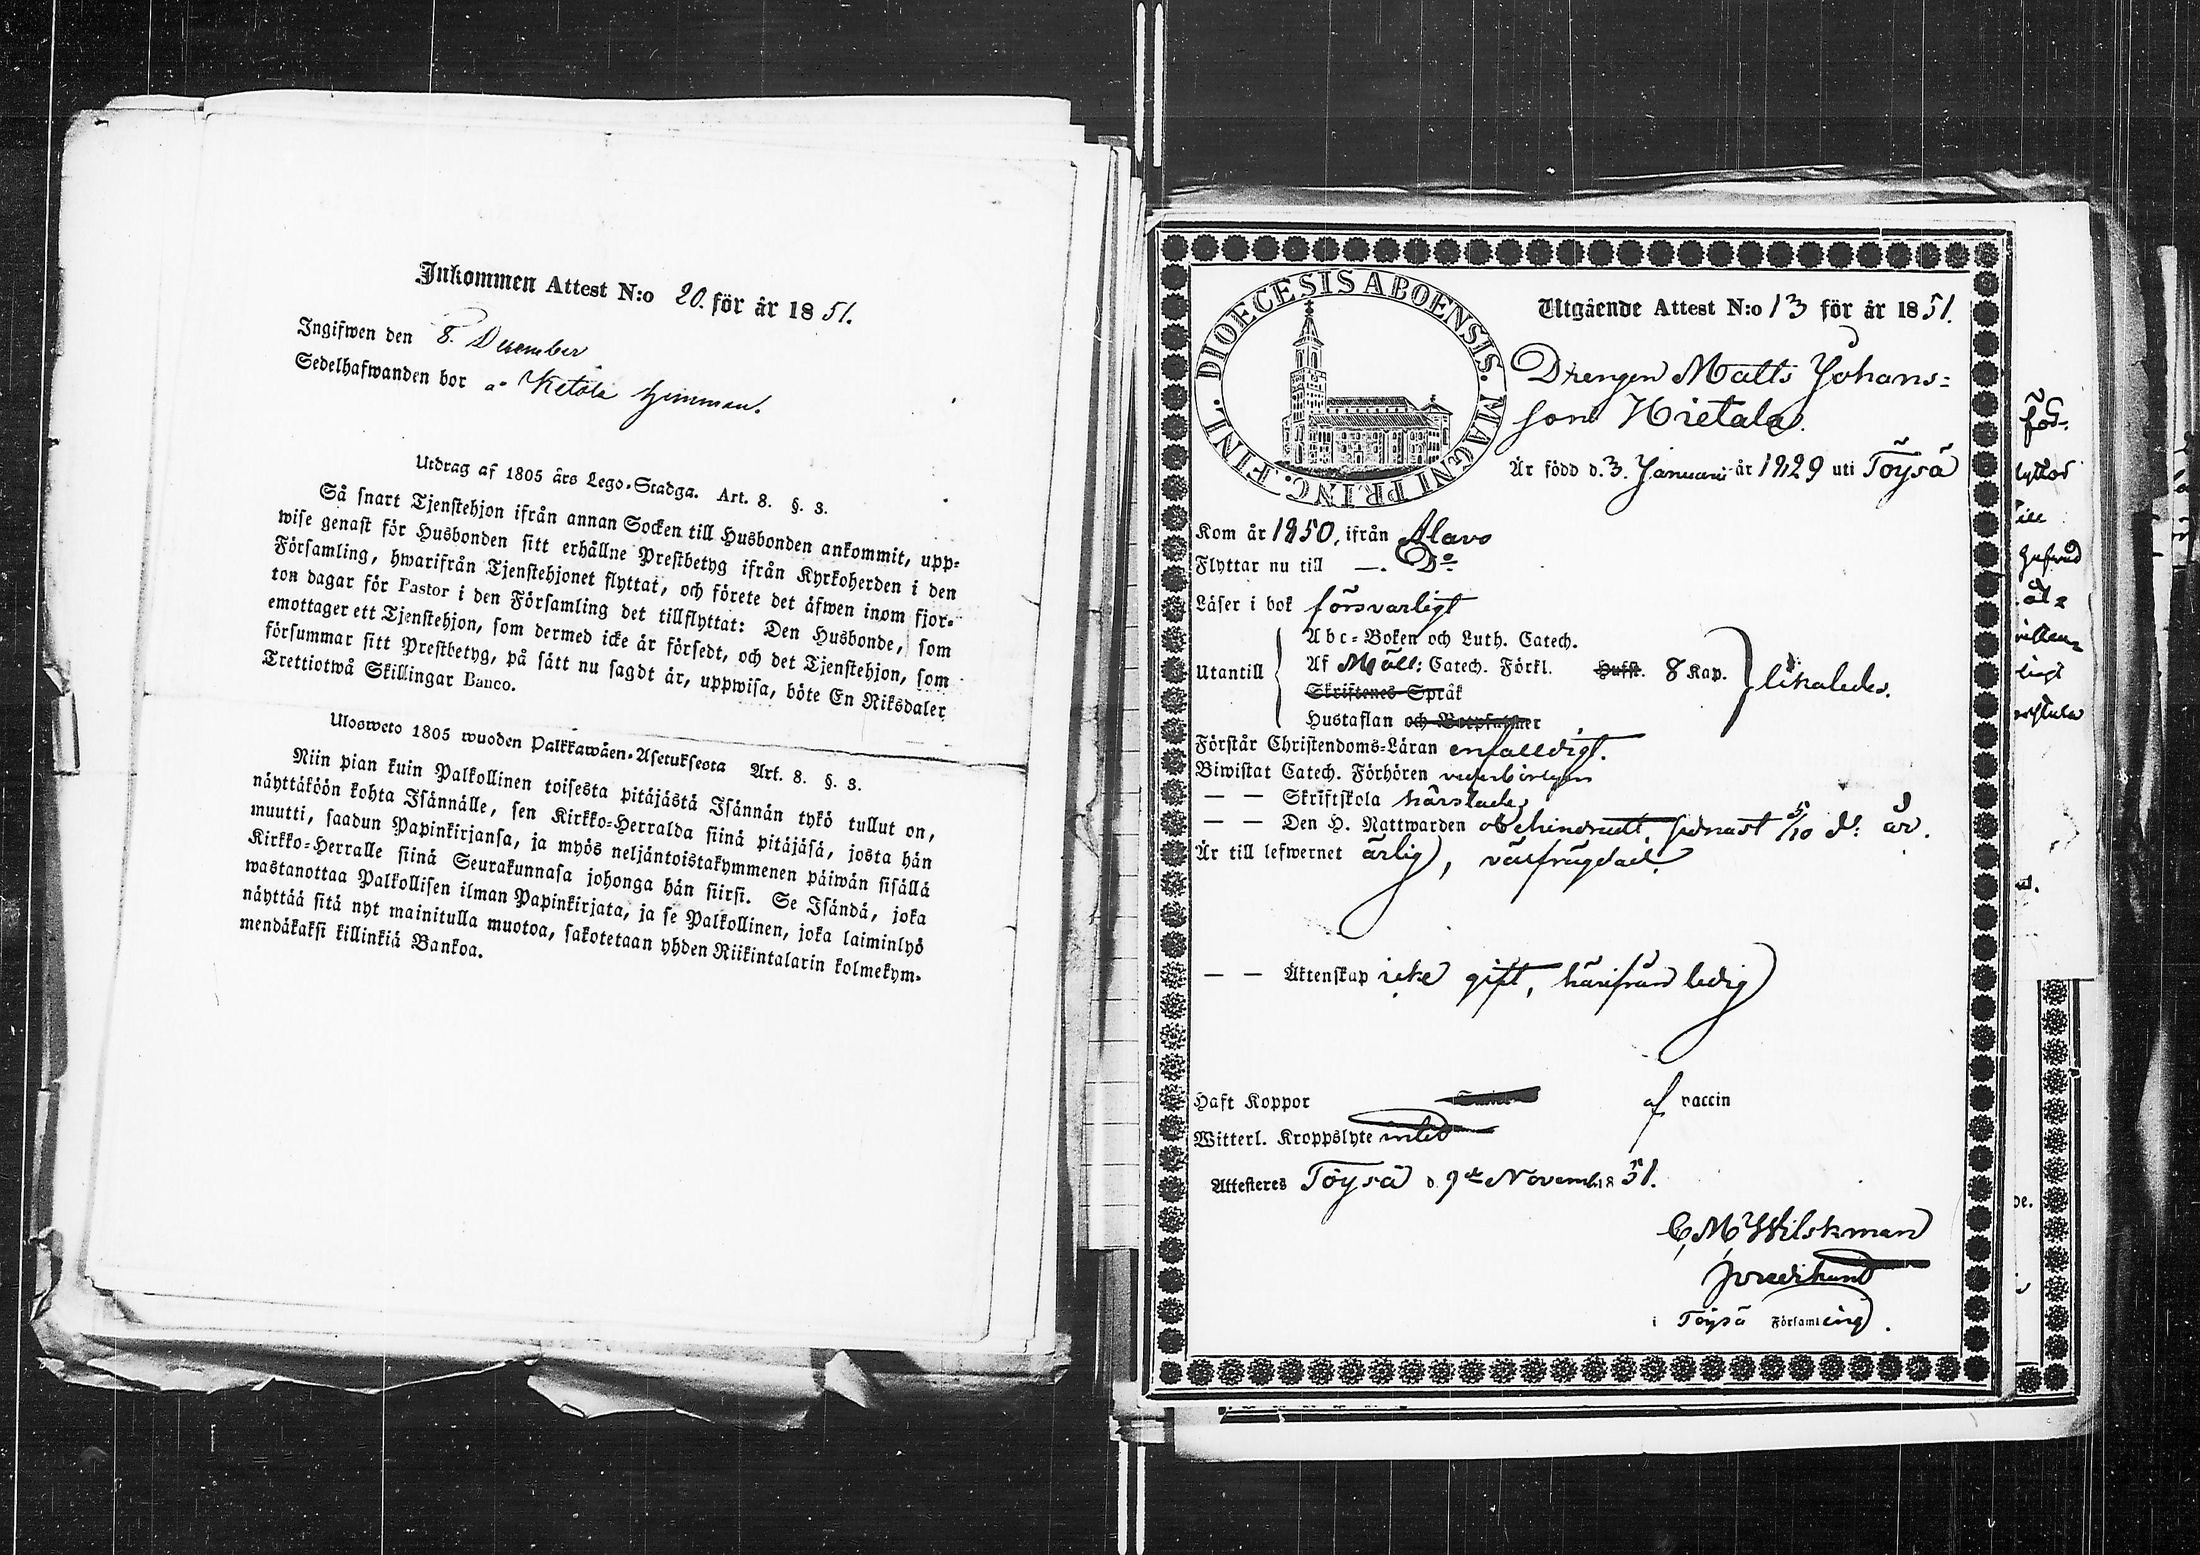 Inkommen Attest N:o 20. för år 1851.
Ingifwen den 8. December
Sedelhafwanden bor å Ketola hemman.
Utdrag af 1805 års Lego-Stadga. Art. 8. §. 3.
Så snart Tjenstehjon ifrån annan Socken till Husbonden ankommit, upp-
wise genast för Husbonden sitt erhållne Prestbetyg ifrån Kyrkoherden i den
Församling, hwarifrån Tjenstehjonet flyttat, och förete det äfwen inom fjor-
ton dagar för Pastor i den Församling det tillflyttat: Den Husbonde, som
emottager ett Tjenstehjon, som dermed icke är försedt, och det Tjenstehjon, som
försummar sitt Prestbetyg, på sätt nu sagdt är, uppwisa, böte En Riksdaler
Trettiotwå Skillingar Banco.
Ulosweto 1805 wuoden Palkkawäen-Asetuksesta Art. 8. §. 3.
Niin pian kuin Palkollinen toisesta pitäjästä Isännän tykö tullut on,
näyttäköön kohta Isännälle, sen Kirkko-Herralda siinä pitäjäsä, josta hän
muutti, saadun Papinkirjansa, ja myös neljäntoistakymmenen päiwän sisällä
Kirkko-Herralle siinä Seurakunnasa johonga hän siirsi. Se Isändä, joka
wastanottaa Palkollisen ilman Papinkirjata, ja se Palkollinen, joka laiminlyö
näyttää sitä nyt mainitulla muotoa, sakotetaan yhden Riikintalarin kolmekym-
mendäkaksi killinkiä Bankoa.
DIOECESIS ABOENSIS. MAGNI PRINC. FINL.
Utgående Attest N:o 13 för år 1851.
Drengen Matts Johans=
son Hietala.
Är född d. 3. Januari år 1829 uti Töysä
Kom år 1850, ifrån Alavo
Flyttar nu till —. Do
Läser i bok försvarligt
Abc-Boken och Luth. Catech.
Utantill Af Möll: Catech. Förkl. Hufst. 8 Kap. likaledes.
Skriftenes Språk
Hustaflan och
Förstår Christendoms-Läran enfalldigt.
Biwistat Catech. Förhören vederbörligen
— — Skriftskola härstädes
— — Den H. Nattwarden obehindradt, sednast 5/10 d: år.
Är till lefwernet ärlig, välfrägdad.
— — Äktenskap icke gift, härifrån ledig
Haft Koppor af vaccin
Witterl. Kroppslyte intet
Attesteras Töysä d. 9de Novemb. 1851.
C, M, Wilskman
i Töysä Församling.